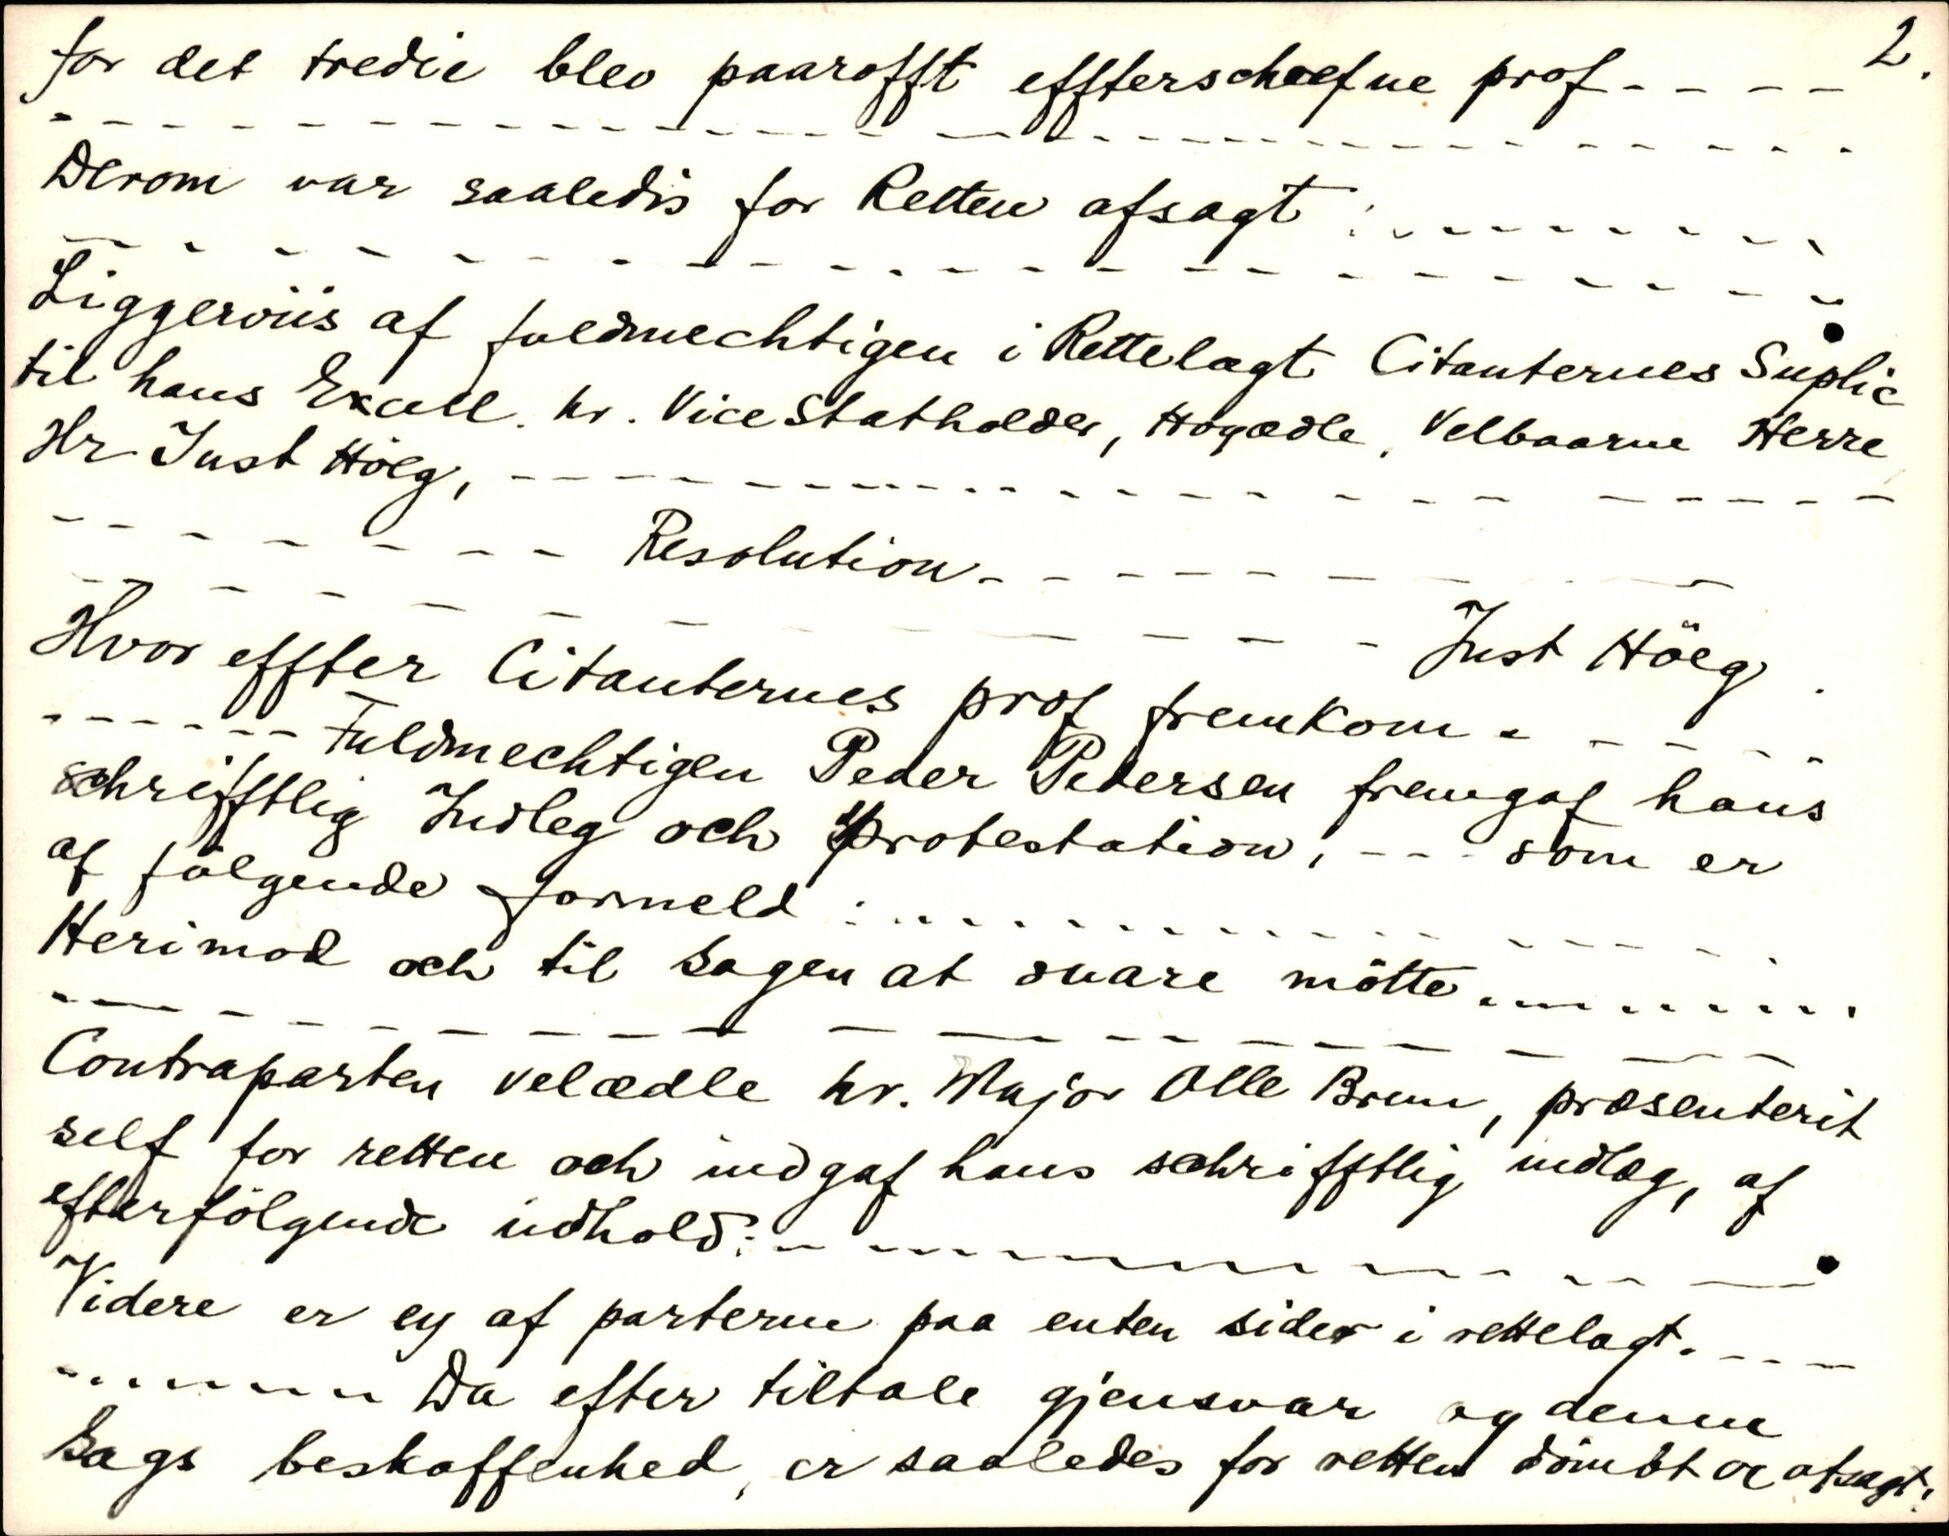 2.
for det tredie blev paarofft effterschrefne prof - - - -
- - - - - - - - - - - - - - - - - - - -
Derom var saaledis for Retten afsagt : - - - - - - - -
- - - - - - - - - - - - - - - - - - - -
Liggerviis af fuldmechtigen i Rettelagt Citanternes Suplic
til hans Excell. hr. Vice Statholder, Høgædle, Velbaarne Herre
Hr Just Höeg, - - - - - - - - - - - - - - - - - -
- - - - - - - - Resolution - - - - - - - - -
- - - - - - - - - - - - Just Höeg.
Hvor effter Citanternes prof fremkom - - - - - -
- - - - - - Fuldmechtigen Peder Pedersen fremgaf hans
schrifftlig Indleg och protestation, - - - som er
af fölgende formeld : - - - - - - - - - - - - - -
Herimod och til Sagen at svare mötte - - - - - - - -
- - - - - - - - - - - - - - - - -
Contraparten velædle hr. Major Olle Brun, præsenterit
self for retten och indgaf hans schrifftlig indlæg, af
efterfölgende indhold: - - - - - - - - - - - - -
Videre er ey af parterne paa enten sider i rettelagt. - - -
- - - - - - - Da efter tiltale gjensvar og denne
Sags beskaffenhed, er saaledes for retten dömbt og afsagt: